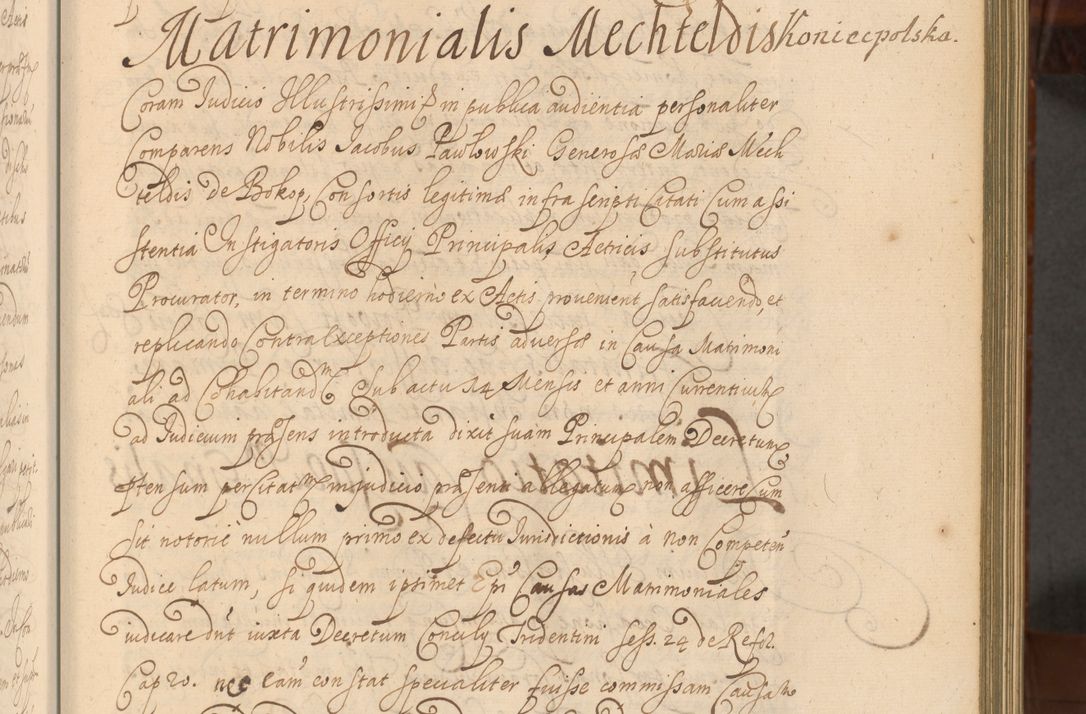 Matrimonialis Mechteldis Koniecpolska.
Coram Judicio Illustrissimi p in publica audientia personaliter
Comparens Nobilis Jacobus Pawlowski Generosæ Mariæ Mech
teldis de Bokop, Consortis legitimæ infra scripti Citati Cum assi
stentia Instigatoris Officij Principalis Actricis substitutus
Procurator, in termino hodierno ex Actis provenient satisfaciendo, et
replicando Contra Exceptiones Partis adversæ in Causa Matrimoni
ali ad Cohabitand sub actu 14 Mensis et anni Currentium
ad Judicium præsens introducta dixit suam Principalem Decretum
ptensum per Citatum in judicio præsenti allegatum non afficere Cum
sit notorie nullum primo ex defectu Jurisdictionis à non Competen
Judice latum, si quidem ipsimet Epi Causas Matrimoniales
iudicare dnt iuxta Decretum Concily Tridentini sess. 24 de Refor.
Cap 20. nec eam constat specialiter fuisse commissam Causam